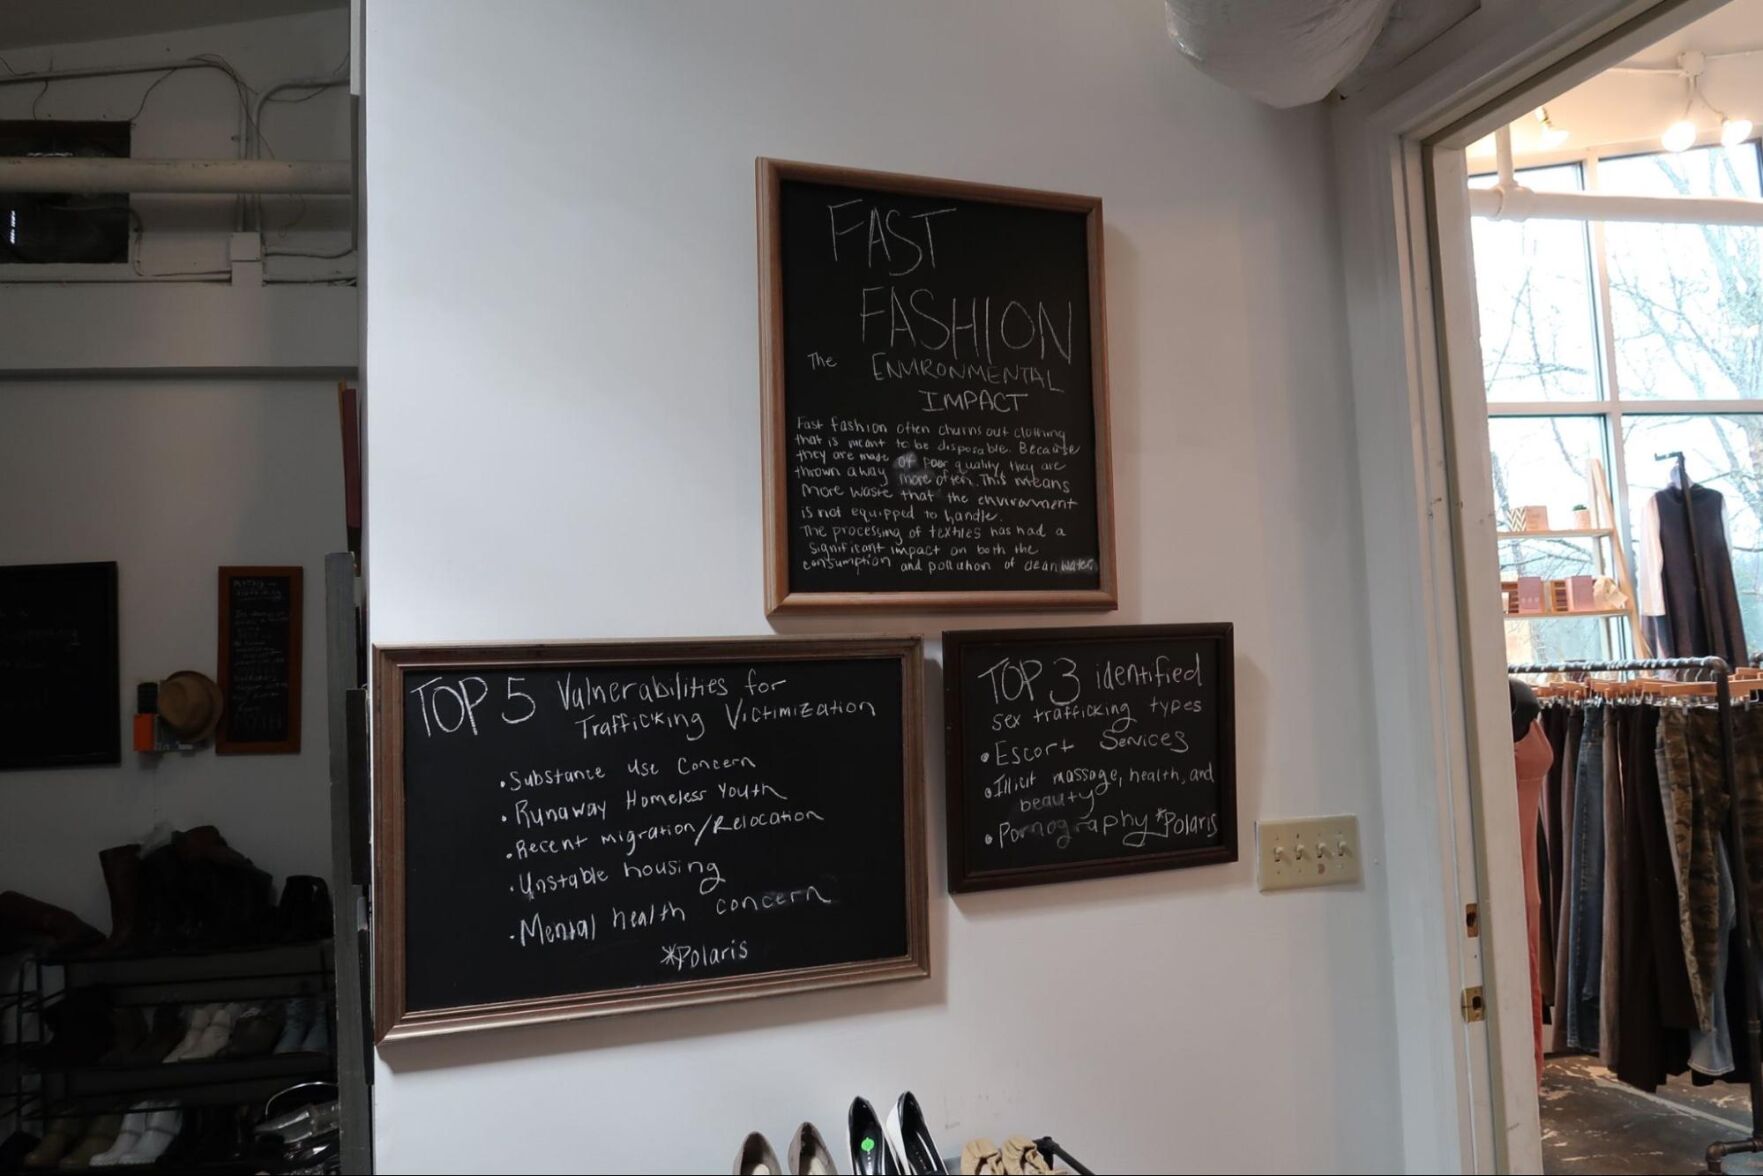 FAST
FASHION
The ENVIRONMENTAL
IMPACT
Fast fashion often churns out clothing
that is meant to be disposable. Because
they are made of poor quality, they are
thrown away more often. This means
more waste that the environment
is not equipped to handle.
The processing of textiles has had a
significant impact on both the
consumption and pollution of clean water.
TOP 5 Vulnerabilities for
Trafficking Victimization
• Substance use Concern
• Runaway Homeless Youth
• Recent migration/Relocation
• Unstable housing
• Mental health concern
*Polaris
TOP 3 identified
sex trafficking types
• Escort Services
• Illicit massage, health, and
beauty
• Pornography *Polaris